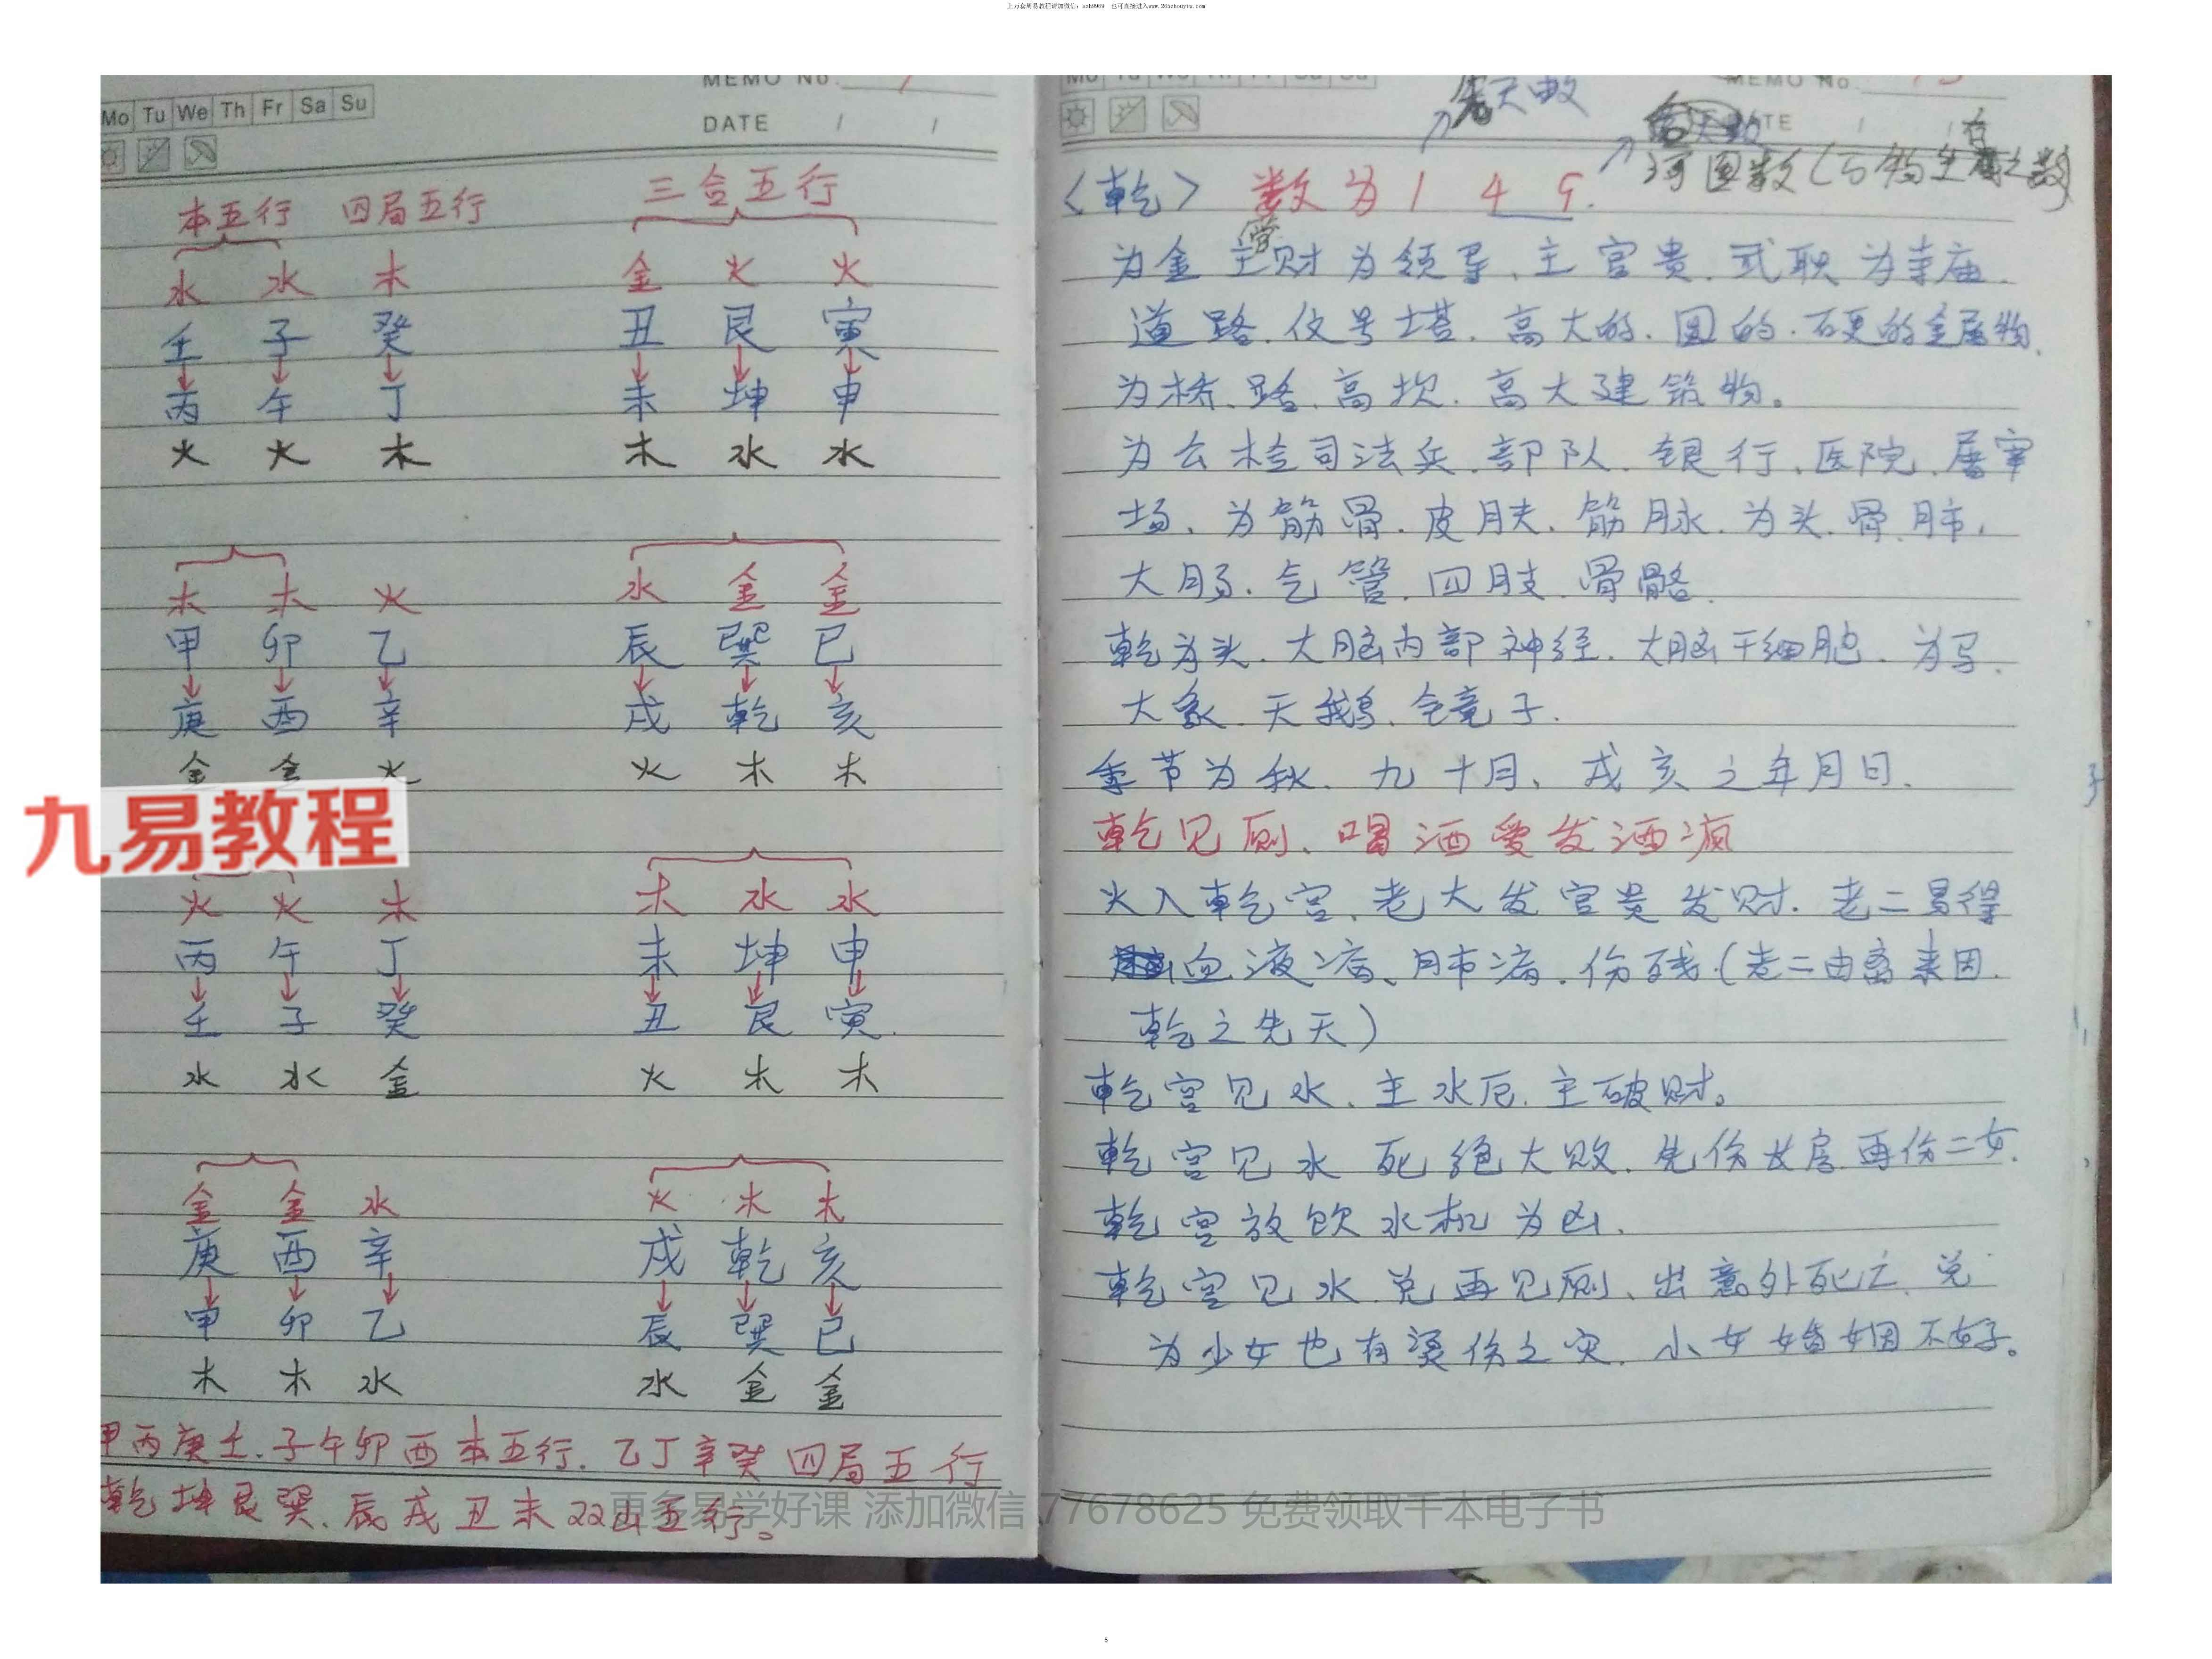 上万套周易教程请加微信：axh9969 也可直接进入www.265zhouyiw.com
MEMO No.
Mo Tu We Th Fr Sa Su
DATE / /
本五行 四局五行 三合五行
水 水 木 金 火 火
壬 子 癸 丑 艮 寅
丙 午 丁 未 坤 申
火 火 木 木 水 水
木 木 火 水 金 金
甲 卯 乙 辰 巽 巳
庚 酉 辛 戌 乾 亥
金 金 火 火 木 木
九易教程
火 火 木 木 水 水
丙 午 丁 未 坤 申
壬 子 癸 丑 艮 寅
水 水 金 火 木 木
金 金 水 火 木 木
庚 酉 辛 戌 乾 亥
甲 卯 乙 辰 巽 巳
木 木 水 水 金 金
甲丙庚壬.子午卯酉本五行.乙丁辛癸四局五行
乾坤艮巽、辰戌丑未双山五行。
MEMO No. 13
先天数
河图数(万物生存之数)
〈乾〉 数为1 4 9.
为金 主财为领导、主官贵.武职为寺庙.
道路.信号塔.高大的.圆的.硬的金属物.
为桥、路、高坎.高大建筑物。
为公检司法兵.部队.银行、医院.屠宰
场、为筋骨.皮肤.筋脉.为头.骨.肺.
大肠.气管.四肢.骨骼.
乾为头.大脑内部神经.大脑干细胞.为马.
大象.天鹅.镜子.
季节为秋.九十月、戌亥之年月日.
乾见厕、喝酒爱发酒疯
火入乾宫、老大发官贵发财.老二易得
血液病、肺病.伤残.(老二由离来因
乾之先天)
乾宫见水、主水厄.主破财。
乾宫见水死绝大败.先伤长房再伤二女.
乾宫放饮水机为凶.
乾宫见水.兑再见厕、出意外死亡.兑
为少女也有烫伤之灾.小女婚姻不好。
更多易学好课 添加微信 77678625 免费领取千本电子书
5